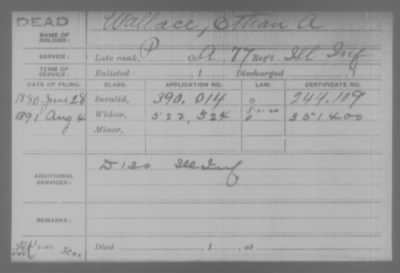 DEAD
NAME OF SOLDIER: Wallace, Ethan A
SERVICE: Late rank, P Co. A, 77 Reg't Ill Inf
TERM OF SERVICE: Enlisted , 1 Discharged , 1
DATE OF FILING. CLASS. APPLICATION NO. LAW. CERTIFICATE NO.
1880 June 28 Invalid, 390,014 0 244,109
1891 Aug 4 Widow, 522,524 351400
Minor,
ADDITIONAL SERVICES: D 120 Ill Inf
REMARKS:
Died , 1 , at